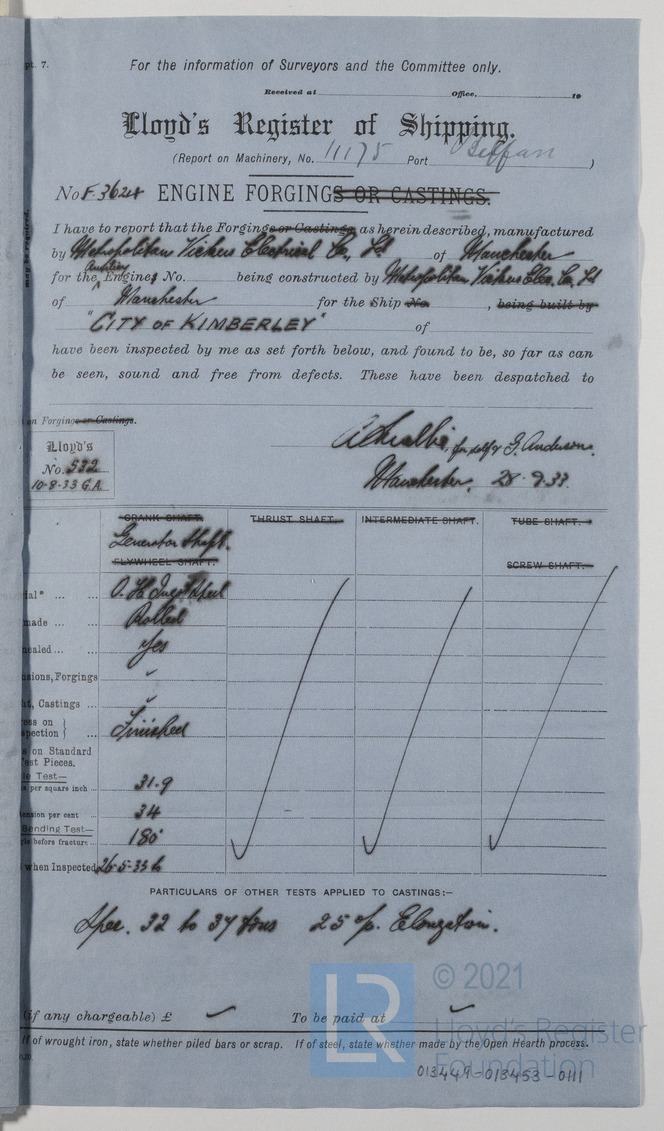 pt. 7.
For the information of Surveyors and the Committee only.
Received at Office, 19
Lloyd's Register of Shipping.
(Report on Machinery, No. 11175 Port Belfast)
No F.3624 ENGINE FORGINGS OR CASTINGS.
I have to report that the Forgings or Castings, as herein described, manufactured
by Metropolitan Vickers Electrical Co, Ld of Manchester
Auxiliary
for the Engines No. being constructed by Metropolitan Vickers Elec. Co. Ld
of Manchester for the Ship No. , being built by
"CITY OF KIMBERLEY" of
have been inspected by me as set forth below, and found to be, so far as can
be seen, sound and free from defects. These have been despatched to
may be required.
on Forgings or Castings.
for self & G. Anderson.
Lloyd's
No. 532
10-8-33 G.A.
Manchester, 28. 9.33.
CRANK SHAFT. THRUST SHAFT. INTERMEDIATE SHAFT. TUBE SHAFT.
Generator Shaft.
FLYWHEEL SHAFT. SCREW SHAFT.
ial* ... ... O. H. Ingot Steel
made ... ... Rolled
ealed ... ... Yes
sions, Forgings
ht, Castings ...
ess on }
spection } ... Finished
s on Standard
est Pieces.
le Test—
s per square inch ... 31.9
ension per cent ... 34
Bending Test—
gle before fracture ... 180°
when Inspected 26-5-33
PARTICULARS OF OTHER TESTS APPLIED TO CASTINGS:—
Spec. 32 to 37 tons 25 % Elongation.
(if any chargeable) £ To be paid at
If of wrought iron, state whether piled bars or scrap. If of steel, state whether made by the Open Hearth process.
LR
© 2021
Lloyd's Register
Foundation
013449-013453-0111